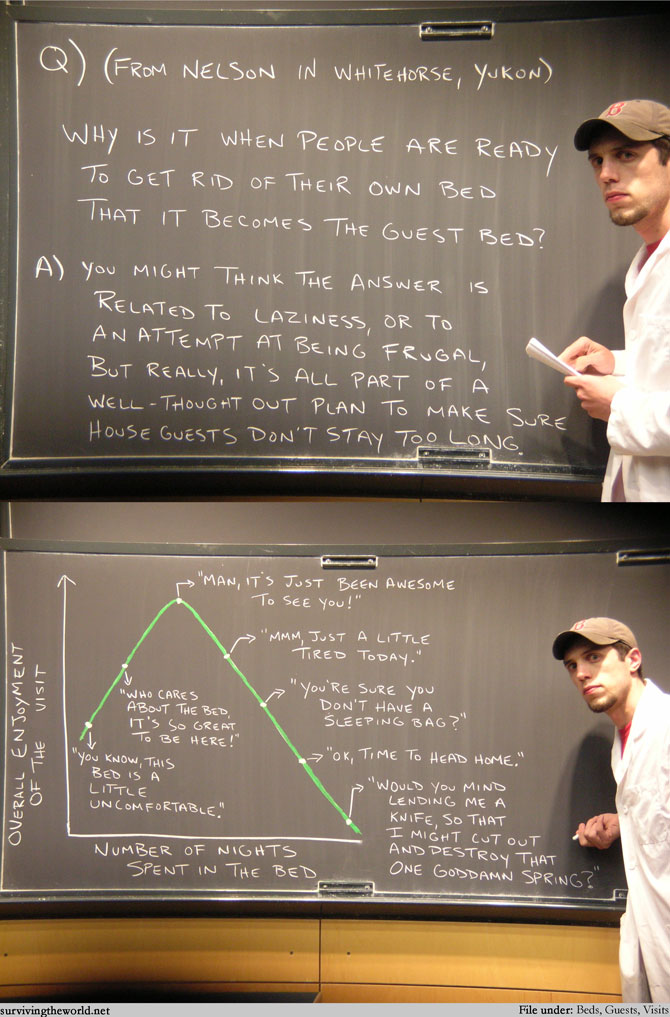 Q) (FROM NELSON IN WHITEHORSE, YUKON)
WHY IS IT WHEN PEOPLE ARE READY
TO GET RID OF THEIR OWN BED
THAT IT BECOMES THE GUEST BED?
A) YOU MIGHT THINK THE ANSWER IS
RELATED TO LAZINESS, OR TO
AN ATTEMPT AT BEING FRUGAL,
BUT REALLY, IT'S ALL PART OF A
WELL-THOUGHT OUT PLAN TO MAKE SURE
HOUSE GUESTS DON'T STAY TOO LONG.
B
OVERALL ENJOYMENT
OF THE VISIT
"MAN, IT'S JUST BEEN AWESOME
TO SEE YOU!"
"MMM, JUST A LITTLE
TIRED TODAY."
"WHO CARES
ABOUT THE BED,
IT'S SO GREAT
TO BE HERE!"
"YOU'RE SURE YOU
DON'T HAVE A
SLEEPING BAG?"
"YOU KNOW, THIS
BED IS A
LITTLE
UNCOMFORTABLE."
"OK, TIME TO HEAD HOME."
"WOULD YOU MIND
LENDING ME A
KNIFE, SO THAT
I MIGHT CUT OUT
AND DESTROY THAT
ONE GODDAMN SPRING?"
NUMBER OF NIGHTS
SPENT IN THE BED
survivingtheworld.net
File under: Beds, Guests, Visits